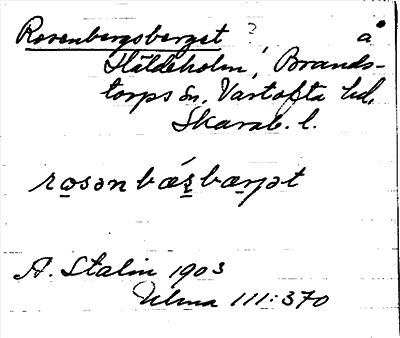 Rosenbergsberget ? å
Häldeholm, Brands-
torps sn, Vartofta hd,
Skarab. l.
rosən bærs bærjət
A. Stalin 1903
Ulma 111:370